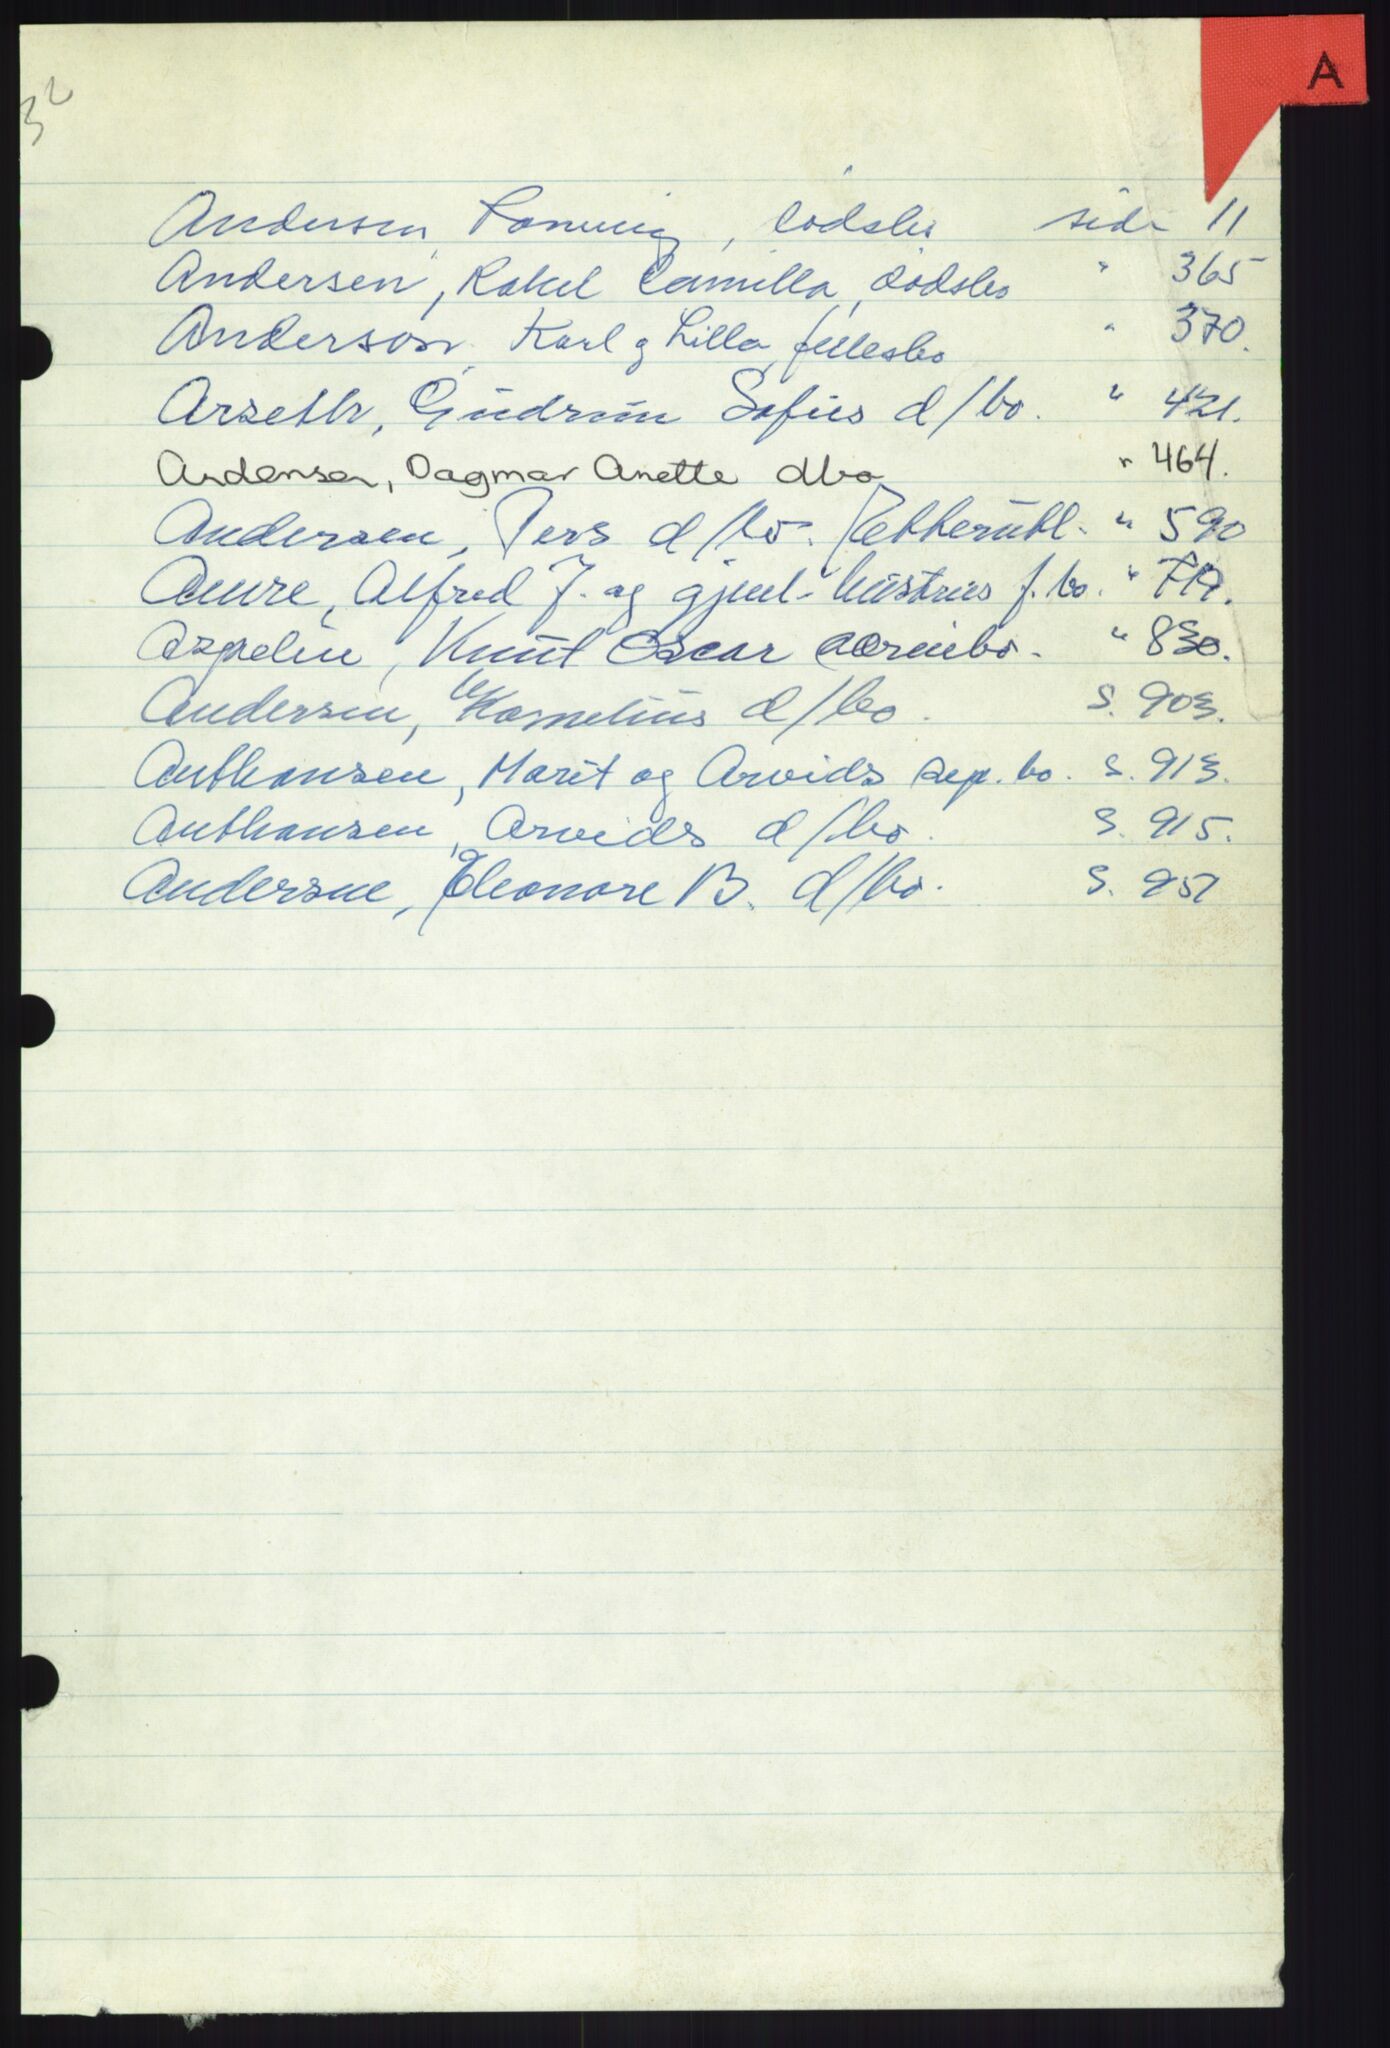 A
32
Andersen, dødsbo side 11
Andersen, Rakel Camilla, dødsbo " 365
Anderson, Karl g Lilla, fellesbo " 370.
Arseth, Gudrun Sofies d/bo. " 421.
Andensen, Dagmar Anette dbo " 464.
Andersen, Pers d/bo. " 590
Aure, Alfred J. og gjenl. hustrus f.bo. "
Aspelin, Knut Oscar " 830.
Andersen, Kornelius d/bo. S. 903.
Anthonsen, Marit og Arvids sep. bo. S. 913.
Anthonsen, Arvids d/bo. S. 915.
Andersne, Eleonore B. d/bo. S. 957